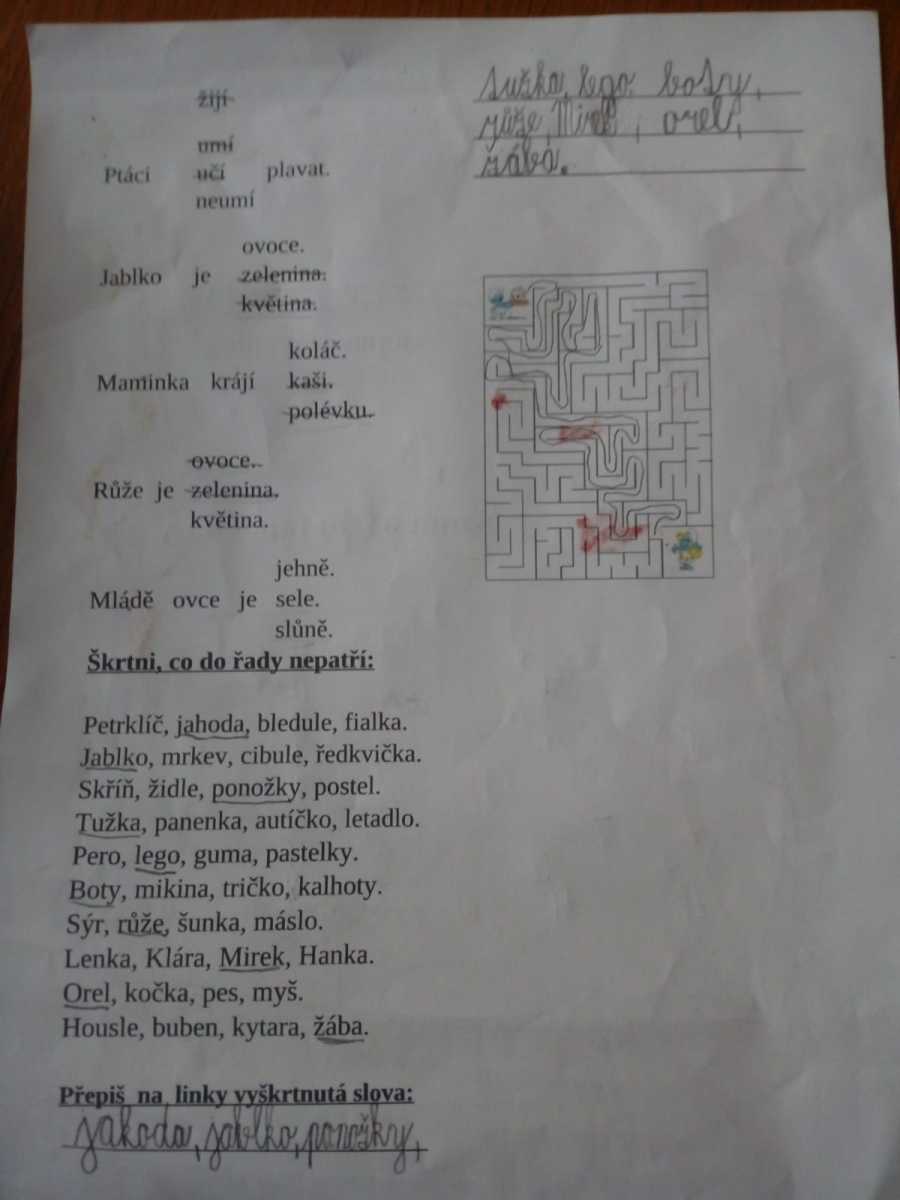 žijí
umí
Ptáci učí plavat.
neumí
ovoce.
Jablko je zelenina.
květina.
koláč.
Maminka krájí kaši.
polévku.
ovoce.
Růže je zelenina.
květina.
jehně.
Mládě ovce je sele.
slůně.
Škrtni, co do řady nepatří:
Petrklíč, jahoda, bledule, fialka.
Jablko, mrkev, cibule, ředkvička.
Skříň, židle, ponožky, postel.
Tužka, panenka, autíčko, letadlo.
Pero, lego, guma, pastelky.
Boty, mikina, tričko, kalhoty.
Sýr, růže, šunka, máslo.
Lenka, Klára, Mirek, Hanka.
Orel, kočka, pes, myš.
Housle, buben, kytara, žába.
Přepiš na linky vyškrtnutá slova:
jahoda, jablko, ponožky,
tužka, lego, boty,
růže, Mirek, orel,
žába.